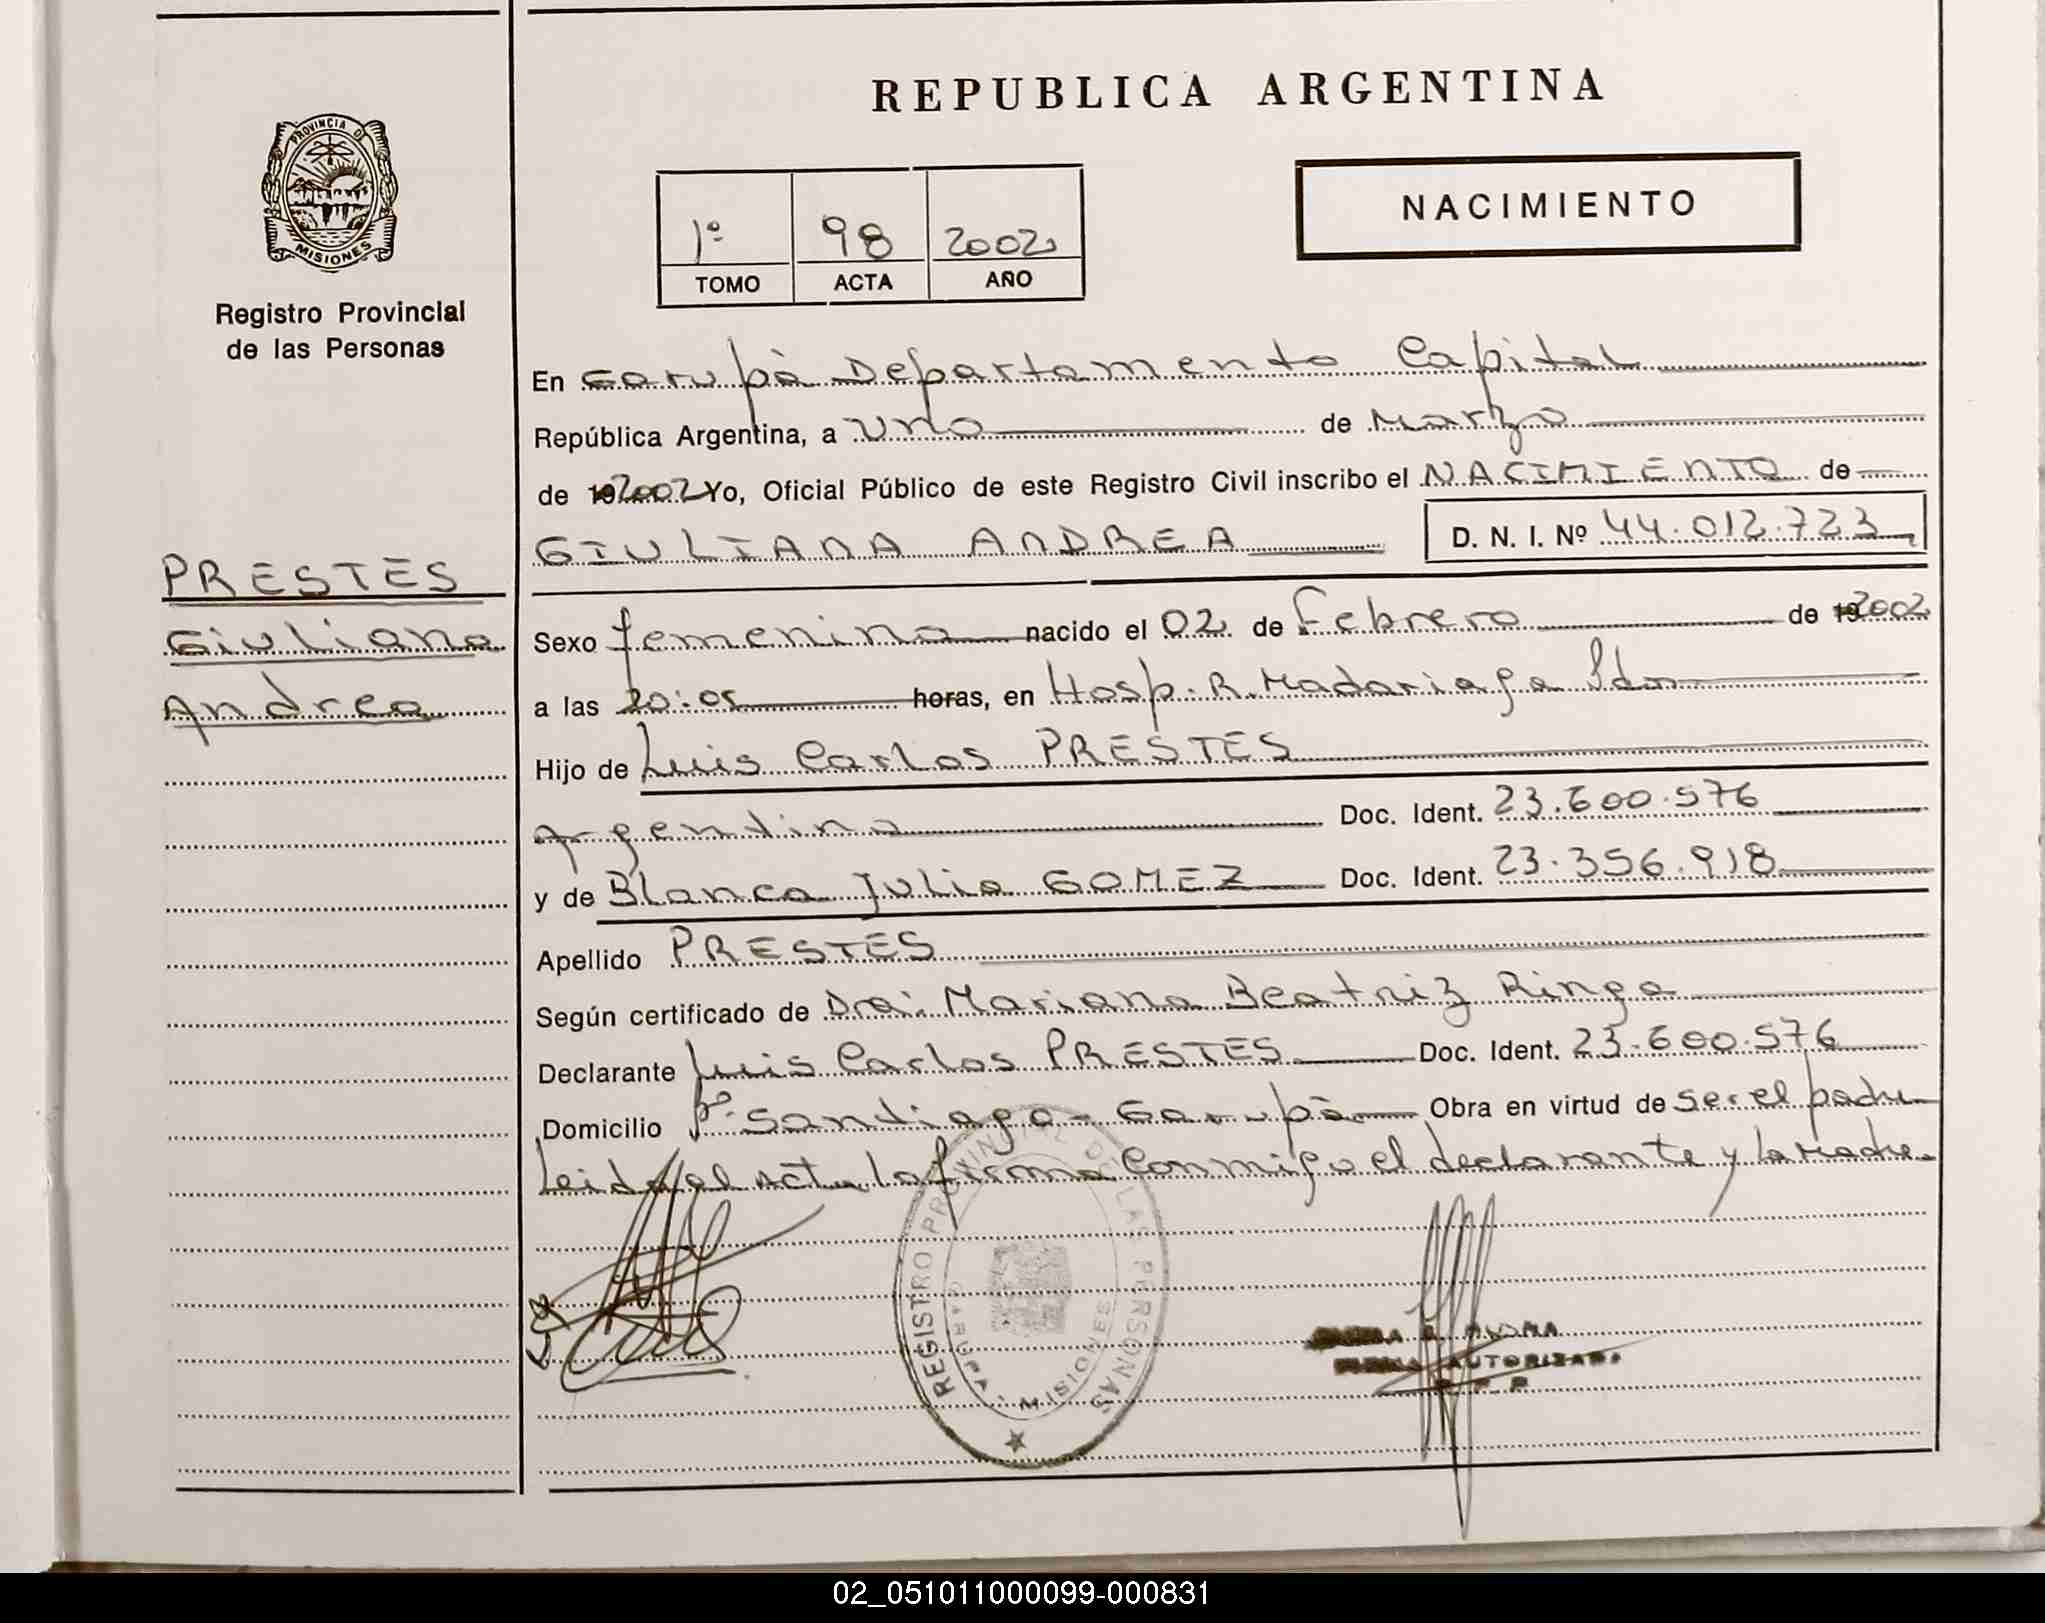 REPUBLICA ARGENTINA
PROVINCIA D
MISIONES
Registro Provincial
de las Personas
NACIMIENTO
1º 98 2002
TOMO ACTA AÑO
En Garupà Departamento Capital
República Argentina, a uno de Marzo
de 2002 Yo, Oficial Público de este Registro Civil inscribo el NACIMIENTO de
GIULIANA ANDREA D. N. I. Nº 44.012.723
PRESTES
Giuliana
Andrea
Sexo femenino nacido el 02 de Febrero de 2002
a las 20:05 horas, en Hosp. R. Madariaga Pdas
Hijo de Luis Carlos PRESTES
Argentino Doc. Ident. 23.600.576
y de Blanca Julia GOMEZ Doc. Ident. 23.356.918
Apellido PRESTES
Según certificado de Dra: Mariana Beatriz Ringa
Declarante Luis Carlos PRESTES Doc. Ident. 23.600.576
Domicilio Bº Santiago - Garupà Obra en virtud de ser el padre
Leida el acta la firma conmigo el declarante y la Madre.
REGISTRO PROVINCIAL DE LAS PERSONAS
GARUPA - MISIONES
FIRMA AUTORIZADA
R. P. P.
02_051011000099-000831